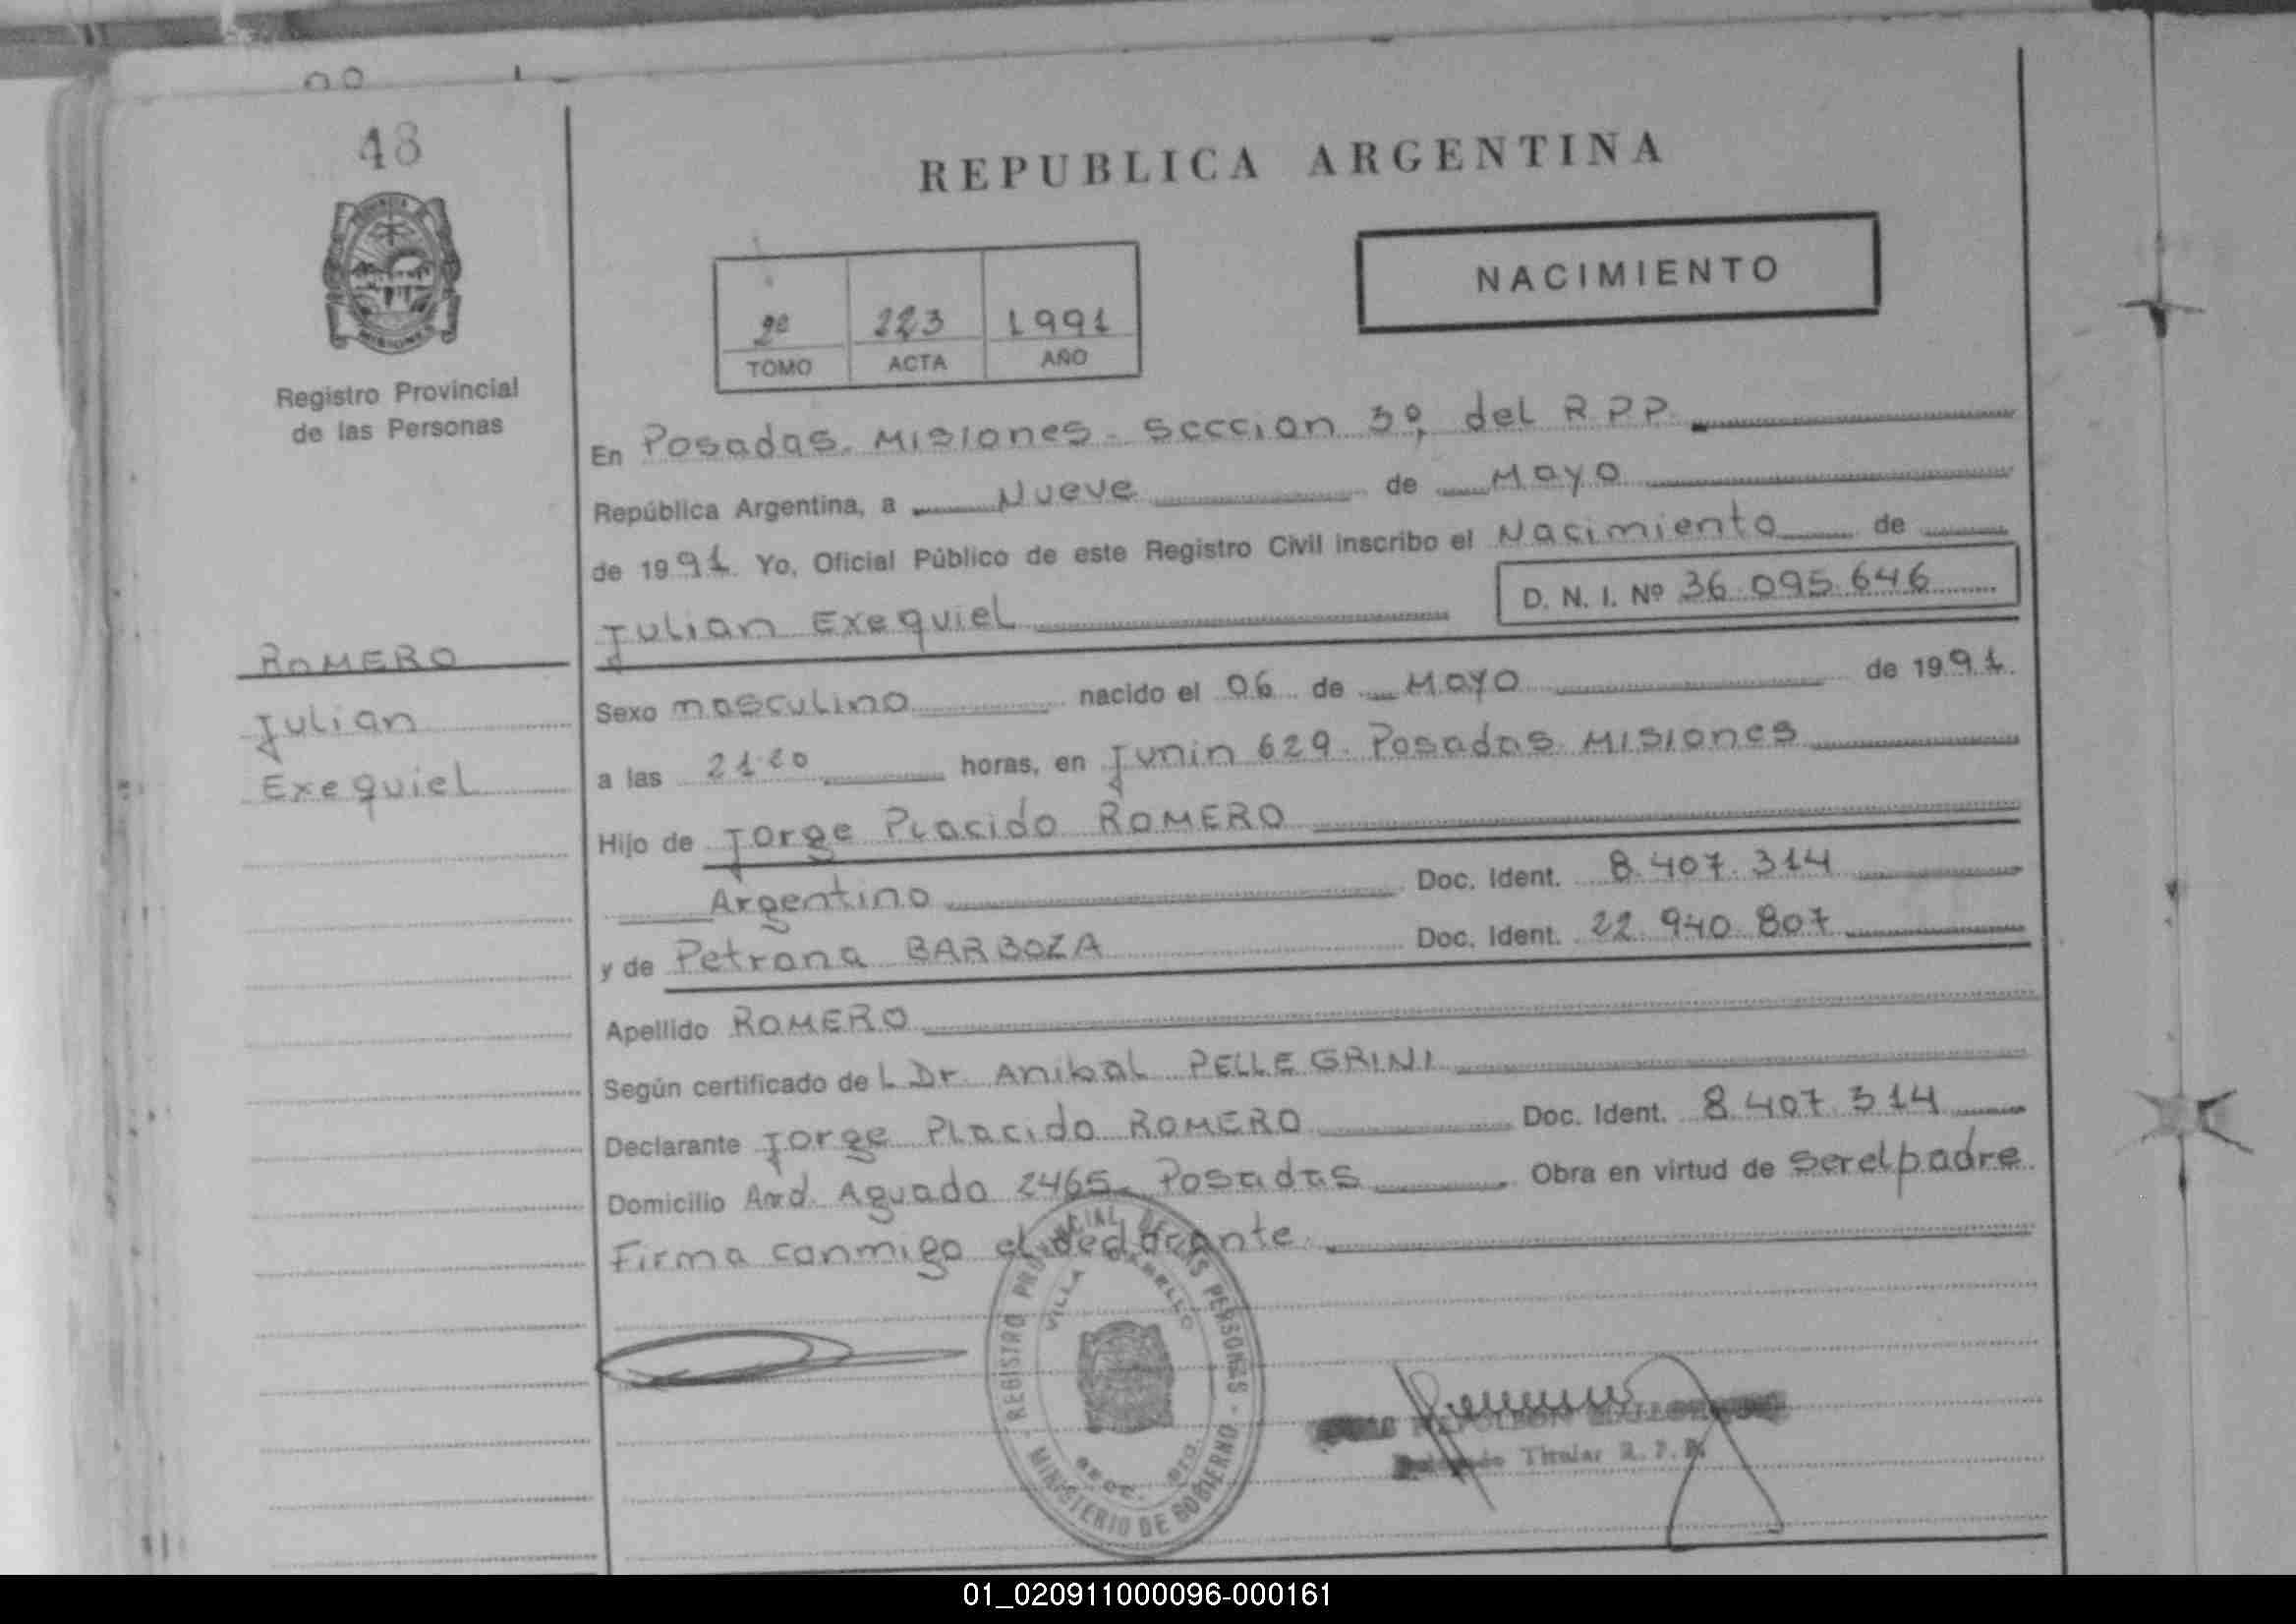 48
REPUBLICA ARGENTINA
NACIMIENTO
2º 223 1991
TOMO ACTA AÑO
Registro Provincial
de las Personas
En Posadas. Misiones - Seccion 3º, del R.P.P.
República Argentina, a Nueve de Mayo
de 1991. Yo, Oficial Público de este Registro Civil inscribo el Nacimiento de
D. N. I. Nº 36.095.646
Julian Exequiel
ROMERO
Julian
Exequiel
Sexo masculino nacido el 06 de Mayo de 1991.
a las 21.20 horas, en Junin 629. Posadas Misiones
Hijo de Jorge Placido ROMERO
Argentino Doc. Ident. 8.407.314
y de Petrona BARBOZA Doc. Ident. 22.940.807
Apellido ROMERO
Según certificado del Dr. Anibal PELLEGRINI
Declarante Jorge Placido ROMERO Doc. Ident. 8.407.314
Domicilio Aguado 2465. Posadas Obra en virtud de ser el padre
Firma conmigo el declarante.
REGISTRO PROVINCIAL DE LAS PERSONAS
VILLA
MINISTERIO DE GOBIERNO
NAPOLEON
Titular R. P. P.
01_020911000096-000161